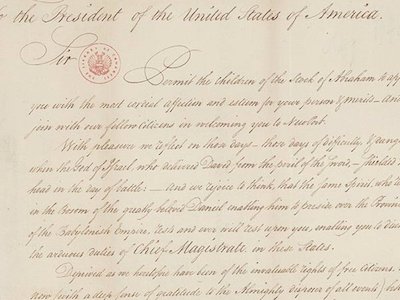 the President of the United States of America.
Sir
Permit the children of the Stock of Abraham to app
you with the most cordial affection and esteem for your person & merits — And
join with our fellow Citizens in welcoming you to NewPort.
With pleasure we reflect on those days — those days of difficulty, & dang
when the God of Israel, who delivered David from the peril of the sword, — shielded
head in the day of battle: — and we rejoice to think, that the same Spirit, who
in the Bosom of the greatly beloved Daniel enabling him to preside over the Provin
of the Babylonish Empire, rests and ever will rest upon you, enabling you to dis
the arduous duties of Chief Magistrate in these States.
Deprived as we heretofore have been of the invaluable rights of free Citizens,
now (with a deep sense of gratitude to the Almighty disposer of all events)